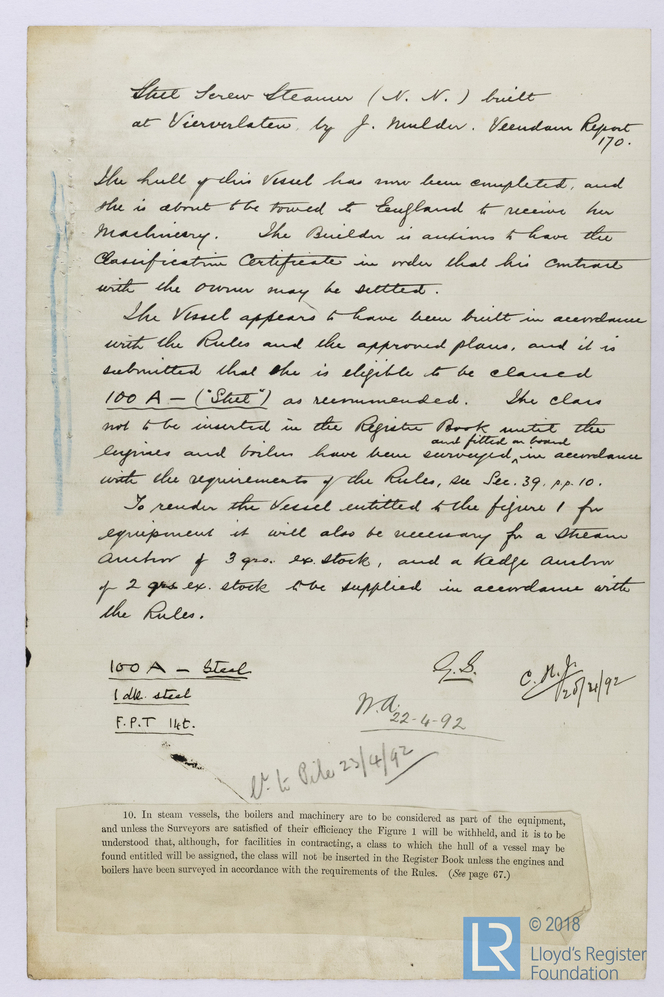 Steel Screw Steamer (N. N.) built
at Vierverlaten, by J. Mulder. Veendam Report
170.
The hull of this Vessel has now been completed, and
she is about to be towed to England to receive her
Machinery. The Builder is anxious to have the
Classification Certificate in order that his contract
with the owner may be settled.
The Vessel appears to have been built in accordance
with the Rules and the approved plans, and it is
submitted that she is eligible to be classed
100 A – ("Steel") as recommended. The class
not to be inserted in the Register Book until the
and fitted on board
engines and boilers have been surveyed, in accordance
with the requirements of the Rules, see Sec. 39. pp. 10.
To render the Vessel entitled to the figure 1 for
equipment it will also be necessary for a Stream
Anchor of 3 qrs. ex. stock, and a Kedge Anchor
of 2 qrs ex. stock to be supplied in accordance with
the Rules.
100 A – Steel
1 dk. steel
F.P.T 14t.
G.S.
C. H. J.
W.A.
22-4-92
to Pile 23/4/92
10. In steam vessels, the boilers and machinery are to be considered as part of the equipment,
and unless the Surveyors are satisfied of their efficiency the Figure 1 will be withheld, and it is to be
understood that, although, for facilities in contracting, a class to which the hull of a vessel may be
found entitled will be assigned, the class will not be inserted in the Register Book unless the engines and
boilers have been surveyed in accordance with the requirements of the Rules. (See page 67.)
LR
© 2018
Lloyd's Register
Foundation